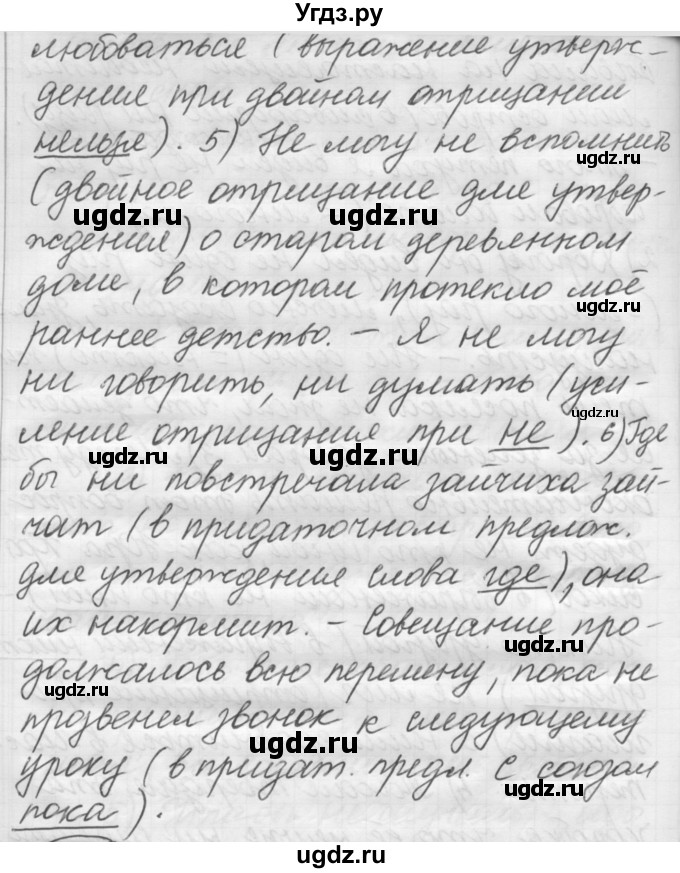 Угдз.ру
любоваться (выражение утверж-
дения при двойном отрицании
нельзя). 5) Не могу не вспомнить
(двойное отрицание для утвер-
ждения) о старом деревянном
доме, в котором протекло моё
раннее детство. – Я не могу
ни говорить, ни думать (уси-
ление отрицания при не). 6) Где
бы ни повстречала зайчиха зай-
чат (в придаточном предлож.
для утверждения слова где), она
их накормит. – Совещание про-
должалось всю перемену, пока не
прозвенел звонок к следующему
уроку (в придат. предл. с союзом
пока).
ugdz.ru
ugdz.ru
ugdz.ru
ugdz.ru
ugdz.ru
ugdz.ru
ugdz.ru
ugdz.ru
ugdz.ru
ugdz.ru
ugdz.ru
ugdz.ru
ugdz.ru
ugdz.ru